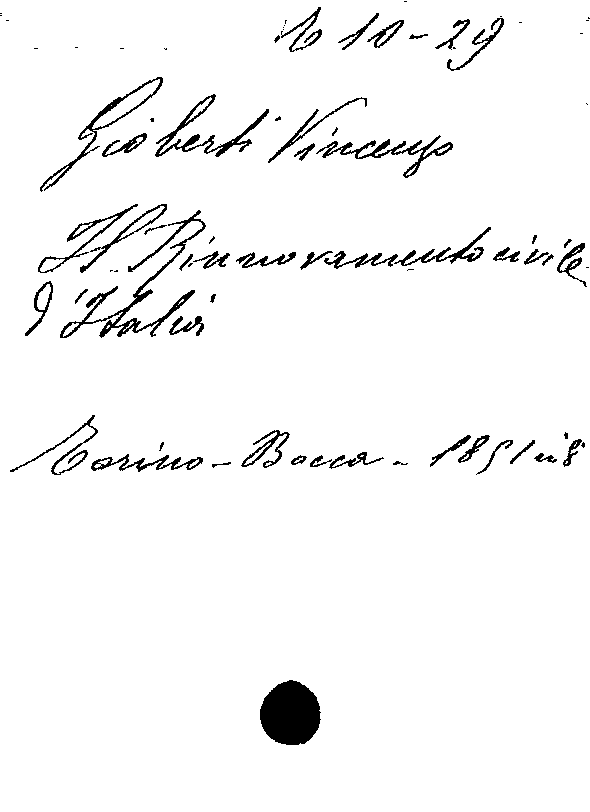 10-29
Gioberti Vincenzo
Il Rinnovamento civile
d'Italia
Torino - Bocca - 1851 in 8